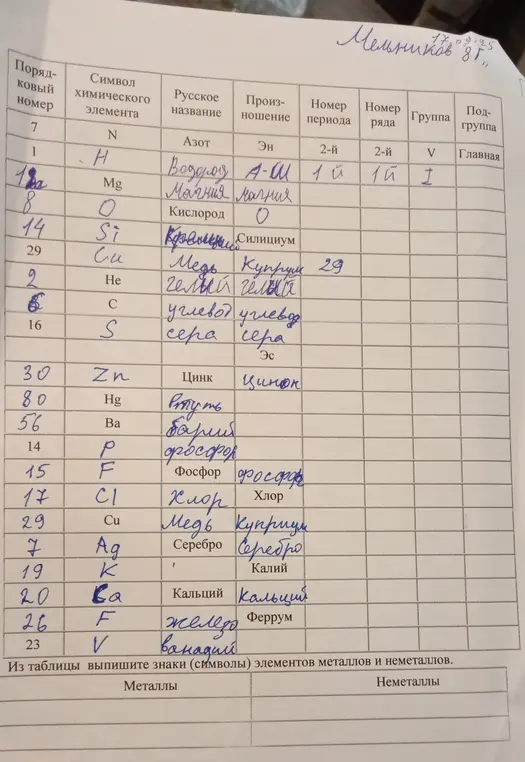 17.09.25
Мельников 8Г
Поряд-ковый номер Символ химического элемента Русское название Произ-ношение Номер периода Номер ряда Группа Под-группа
7 N Азот Эн 2-й 2-й V Главная
1 H Водород А-Ш 1 й 1 й I
12 Mg Магния магния
8 O Кислород О
14 Si Силициум
29 Cu Медь Купрум 29
2 He гелый гелый
6 C углевод углевод
16 S сера сера
Эс
30 Zn Цинк цинон
80 Hg Ртуть
56 Ba барий
14 P фосфор
15 F Фосфор фосфор
17 Cl Хлор Хлор
29 Cu Медь Куприум
7 Ag Серебро Серебро
19 K Калий
20 Ca Кальций Кальций
26 F железо Феррум
23 V ванадий
Из таблицы выпишите знаки (символы) элементов металлов и неметаллов.
Металлы Неметаллы